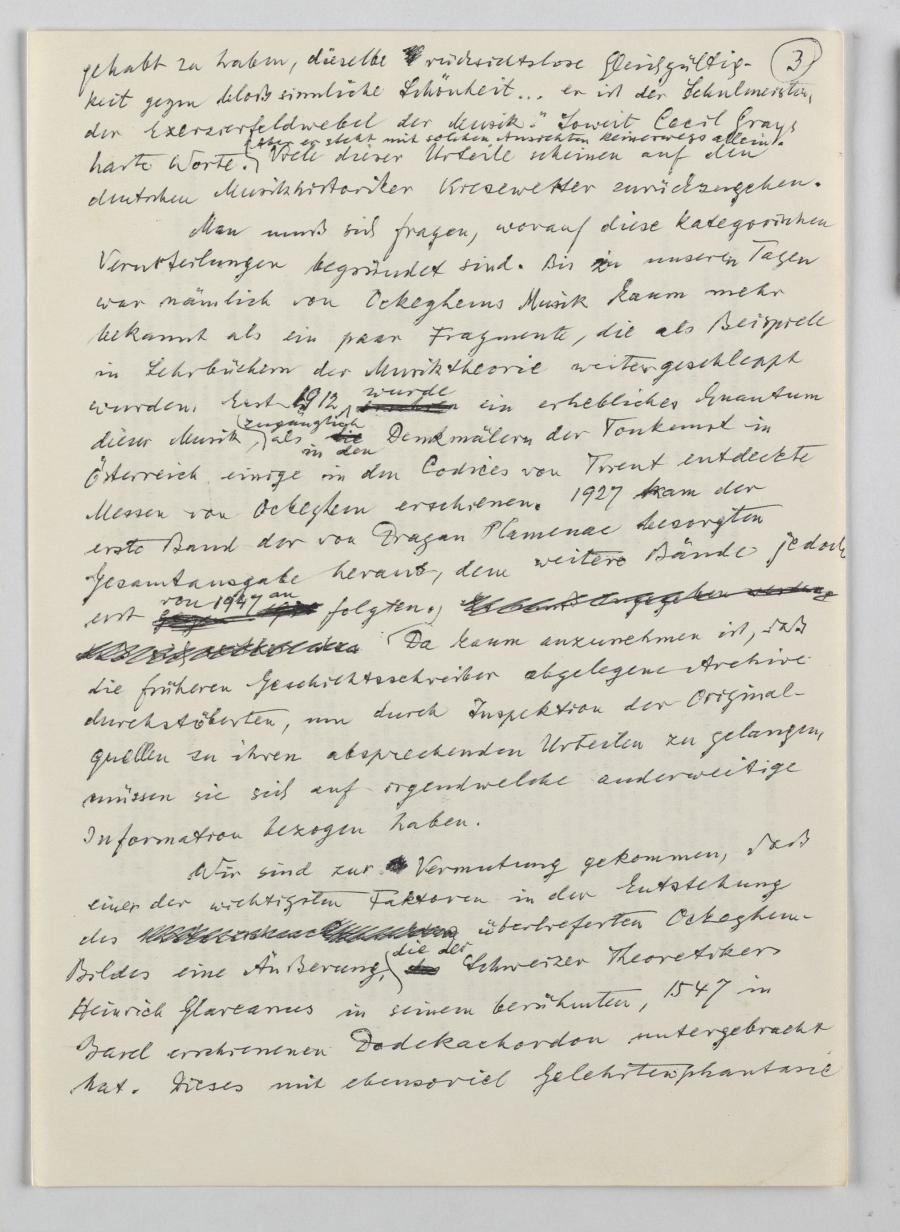 3
gehabt zu haben, dieselbe rücksichtslose Gleichgültig-
keit gegen bloß sinnliche Schönheit... er ist der Schulmeister,
der Exerzierfeldwebel der Musik." Soweit Cecil Grays
Aber er steht mit solchen Ansichten keineswegs allein.
harte Worte. Viele dieser Urteile scheinen auf den
deutschen Musikhistoriker Kiesewetter zurückzugehen.
Man muß sich fragen, worauf diese kategorischen
Verurteilungen begründet sind. Bis zu unseren Tagen
war nämlich von Ockeghems Musik kaum mehr
bekannt als ein paar Fragmente, die als Beispiele
in Lehrbüchern der Musiktheorie weitergeschleppt
wurden. Erst 1912 wurde ein erhebliches Quantum
dieser Musik zugänglich, als in den Denkmälern der Tonkunst in
Österreich einige in den Codices von Trient entdeckte
Messen von Ockeghem erschienen. 1927 kam der
erste Band der von Dragan Plamenac besorgten
Gesamtausgabe heraus, dem weitere Bände jedoch
erst von 1947 an folgten.
Da kaum anzunehmen ist, daß
die früheren Geschichtsschreiber abgelegene Archive
durchstöberten, um durch Inspektion der Original-
quellen zu ihren absprechenden Urteilen zu gelangen,
müssen sie sich auf irgendwelche anderweitige
Information bezogen haben.
Wir sind zur Vermutung gekommen, daß
einer der wichtigsten Faktoren in der Entstehung
des überlieferten Ockeghem-
Bildes eine Äußerung, die der Schweizer Theoretiker
Heinrich Glareanus in seinem berühmten, 1547 in
Basel erschienenen Dodekachordon untergebracht
hat. Dieses mit ebensoviel Gelehrtenphantasie